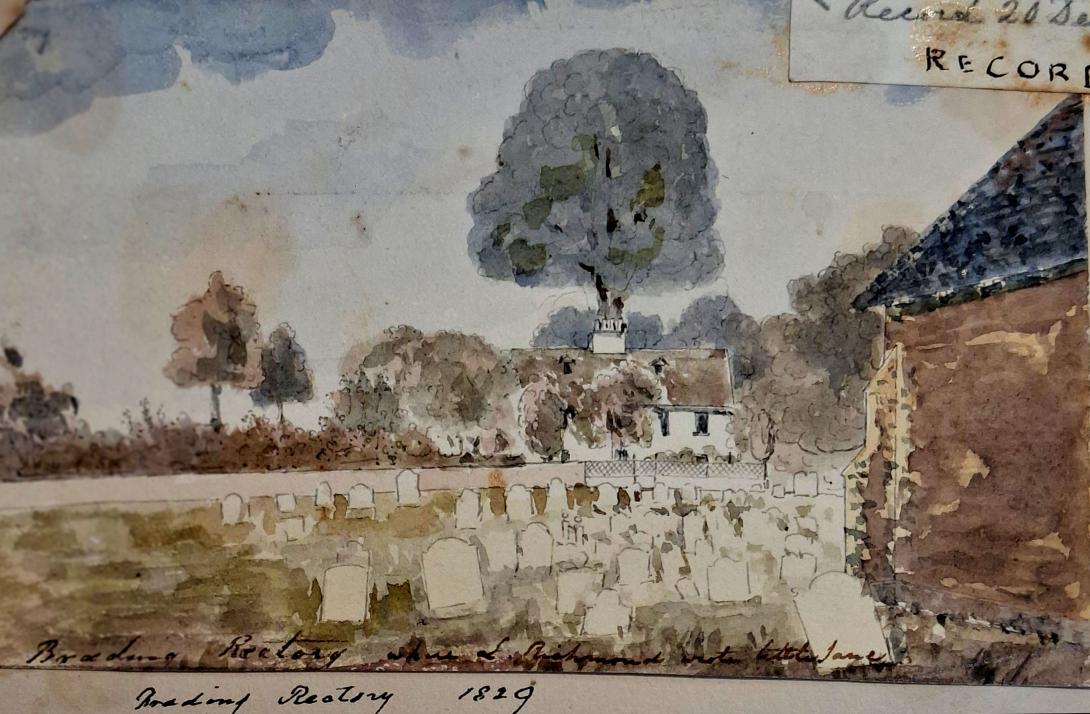 Record 20 De
RECORD
Brading Rectory where L Richmond wrote little Jane
Brading Rectory 1829